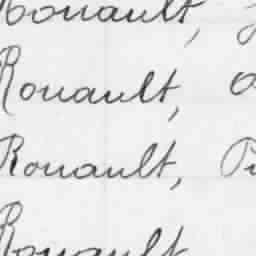 Rouault,
Rouault,
Rouault,
Rouault